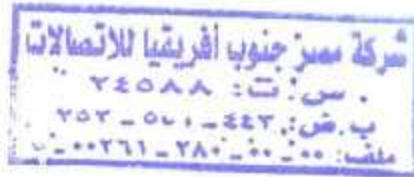 شركة مصر جنوب أفريقيا للاتصالات
س.ت: ٢٤٥٨٨
ب.ض: ٤٤٣ - ٥٦١ - ٢٥٢
ملف: ٥٥ - ٠٠ - ٢٨٠ - ٠٠٢٦١